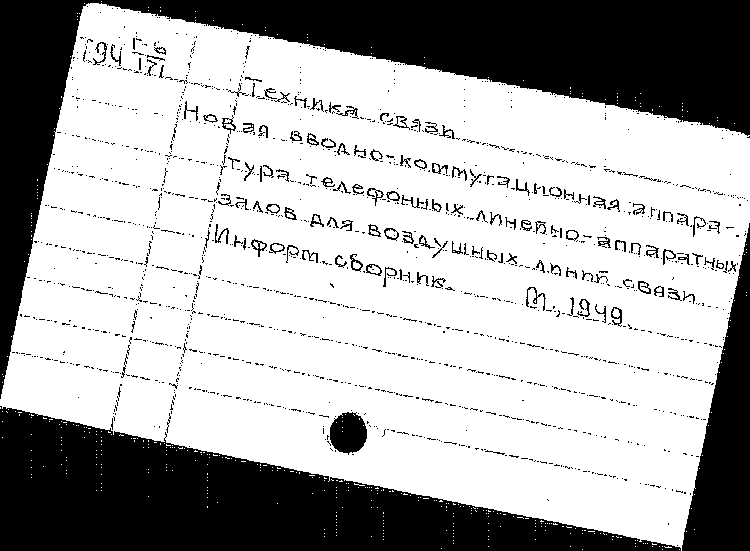 194 Г-6
171
Техника связи
Новая вводно-коммутационная аппара-
тура телефонных линейно-аппаратных
залов для воздушных линий связи.
Информ. сборник. М., 1949.